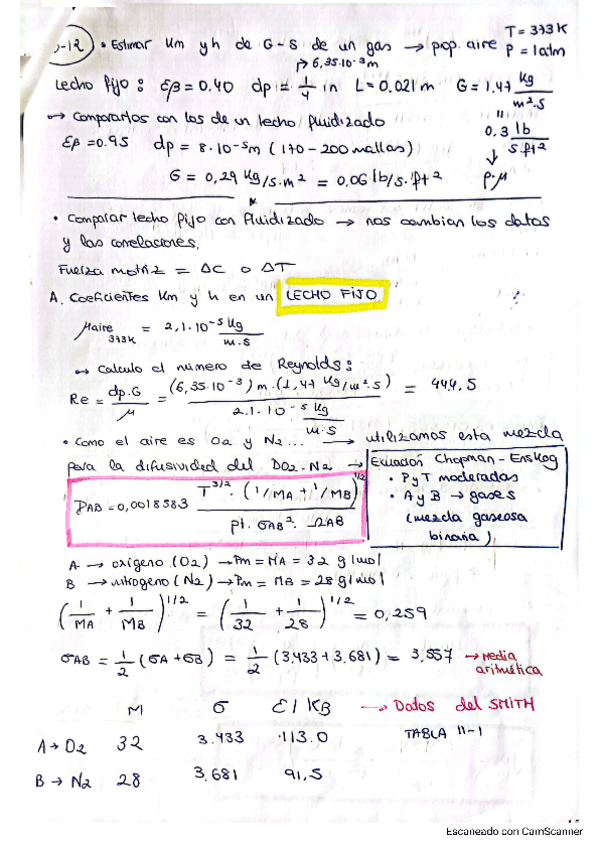 -12 • Estimar Km y h de G-S de un gas → pop. aire
T = 373K
P = 1atm
↱ 6,35·10⁻³m
Lecho Fijo: Eβ = 0.40 dp = 1/4 in L = 0.021 m G = 1.47 Kg/m²·S
↪ Compararlos con los de un lecho fluidizado
" 0,3 lb/s.ft²
Eβ = 0.95 dp = 8·10⁻⁵m (170 - 200 mallas)
↓ ρ·μ
G = 0,29 Kg/s.m² = 0,06 lb/s.ft²
• Comparar lecho fijo con Fluidizado → nos cambian los datos
y las correlaciones.
Fuerza motriz = ΔC o ΔT
A. Coeficientes Km y h en un LECHO FIJO
μaire 373K = 2,1·10⁻⁵ Kg/m·s
↪ Calculo el número de Reynolds:
Re = dp·G/μ = (6,35·10⁻³)m·(1,47 Kg/m²·s) / 2.1·10⁻⁵ Kg/m·s = 444,5
• Como el aire es O2 y N2 ... → utilizamos esta mezcla
para la difusividad del DO2-N2 → Ecuación Chapman - Enskog
• P y T moderadas
• A y B → gases
(mezcla gaseosa
binaria)
DAB = 0,0018583 T^3/2 · (1/MA + 1/MB)^1/2 / pt. σAB² · ΩAB
A → oxígeno (O2) → Pm = MA = 32 g/mol
B → nitrogeno (N2) → Pm = MB = 28 g/mol
(1/MA + 1/MB)^1/2 = (1/32 + 1/28)^1/2 = 0,259
σAB = 1/2 (σA + σB) = 1/2 (3,433 + 3,681) = 3,557 → Media
aritmética
M σ E/KB → Datos del SMITH
A → O2 32 3.433 113.0 TABLA 11-1
B → N2 28 3.681 91,5
Escaneado con CamScanner